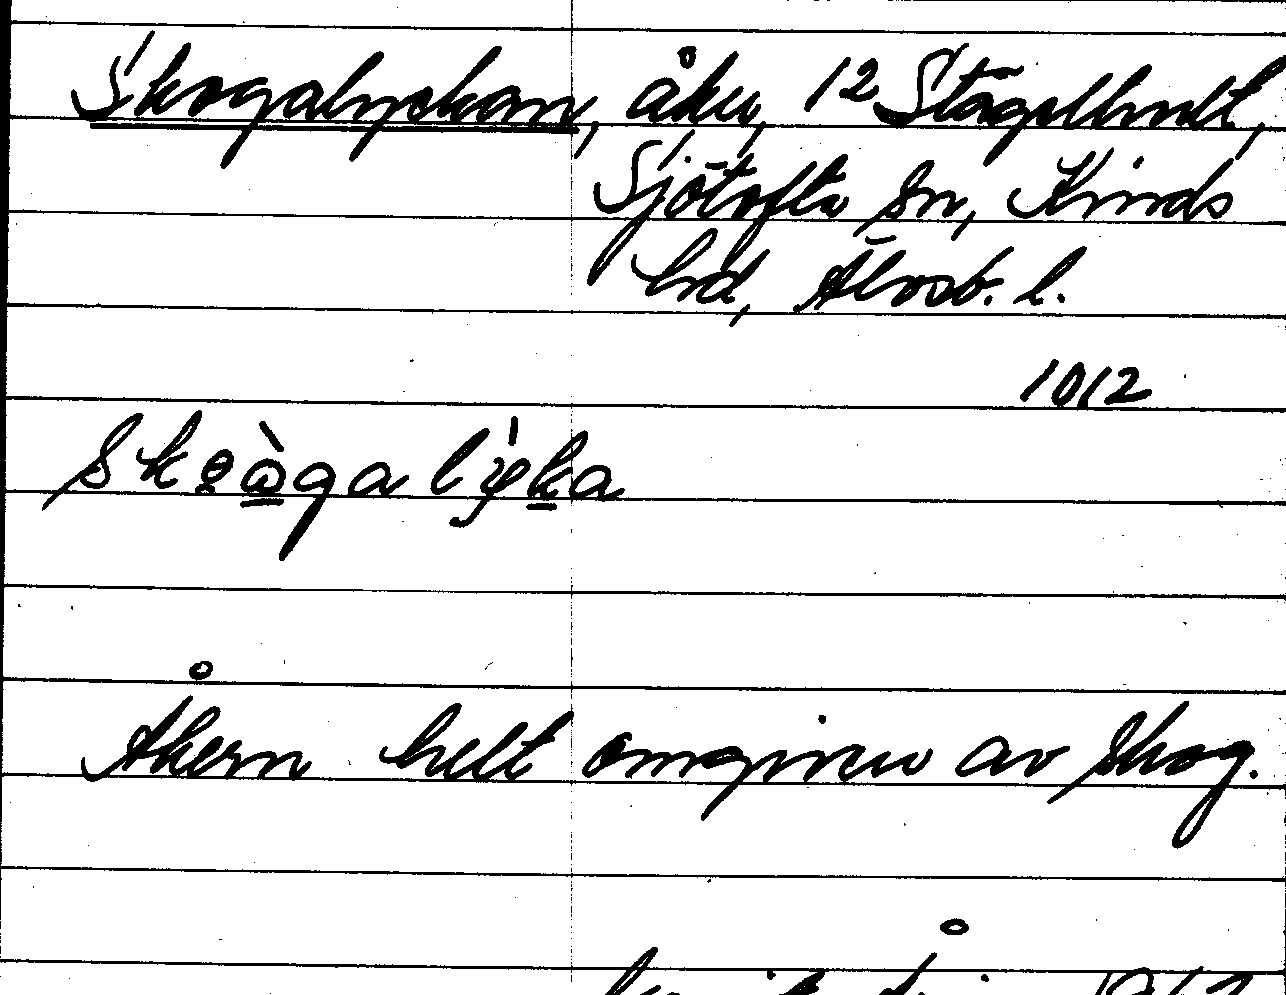 Skogalyckan, åker, 12 Stägelhult,
Sjötofta sn, Kinds
hd, Älvsb. l.
1012
Åkern helt omgiven av skog.